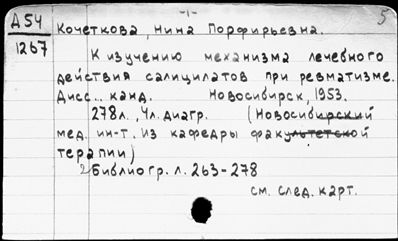 -1-
5
А54
1267
Кочеткова, Нина Порфирьевна.
К изучению механизма лечебного
действия салицилатов при ревматизме.
Дисс... канд. Новосибирск, 1953.
278л., 4л. диагр. (Новосибирский
мед. ин-т. Из кафедры факультетской
терапии)
2 Библиогр. л. 263-278
см. след. карт.